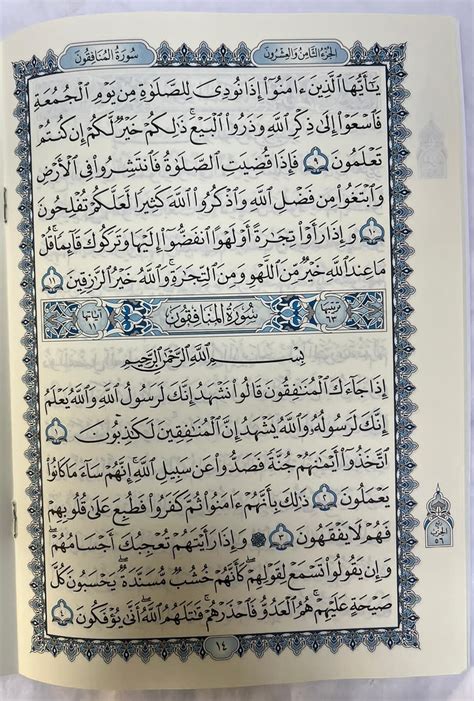 الجزء الثامن والعشرون
سورة المنافقون
يَٰٓأَيُّهَا ٱلَّذِينَ ءَامَنُوٓا۟ إِذَا نُودِىَ لِلصَّلَوٰةِ مِن يَوْمِ ٱلْجُمُعَةِ
فَٱسْعَوْا۟ إِلَىٰ ذِكْرِ ٱللَّهِ وَذَرُوا۟ ٱلْبَيْعَ ۚ ذَٰلِكُمْ خَيْرٌ لَّكُمْ إِن كُنتُمْ
تَعْلَمُونَ ٩ فَإِذَا قُضِيَتِ ٱلصَّلَوٰةُ فَٱنتَشِرُوا۟ فِى ٱلْأَرْضِ
وَٱبْتَغُوا۟ مِن فَضْلِ ٱللَّهِ وَٱذْكُرُوا۟ ٱللَّهَ كَثِيرًا لَّعَلَّكُمْ تُفْلِحُونَ
١٠ وَإِذَا رَأَوْا۟ تِجَٰرَةً أَوْ لَهْوًا ٱنفَضُّوٓا۟ إِلَيْهَا وَتَرَكُوكَ قَآئِمًا ۚ قُلْ
مَا عِندَ ٱللَّهِ خَيْرٌ مِّنَ ٱللَّهْوِ وَمِنَ ٱلتِّجَٰرَةِ ۚ وَٱللَّهُ خَيْرُ ٱلرَّٰزِقِينَ ١١
ترتيبها ٦٣ سورة المنافقون آياتها ١١
بِسْمِ ٱللَّهِ ٱلرَّحْمَٰنِ ٱلرَّحِيمِ
إِذَا جَآءَكَ ٱلْمُنَٰفِقُونَ قَالُوا۟ نَشْهَدُ إِنَّكَ لَرَسُولُ ٱللَّهِ ۗ وَٱللَّهُ يَعْلَمُ
إِنَّكَ لَرَسُولُهُۥ وَٱللَّهُ يَشْهَدُ إِنَّ ٱلْمُنَٰفِقِينَ لَكَٰذِبُونَ ١
ٱتَّخَذُوٓا۟ أَيْمَٰنَهُمْ جُنَّةً فَصَدُّوا۟ عَن سَبِيلِ ٱللَّهِ ۚ إِنَّهُمْ سَآءَ مَا كَانُوا۟
يَعْمَلُونَ ٢ ذَٰلِكَ بِأَنَّهُمْ ءَامَنُوا۟ ثُمَّ كَفَرُوا۟ فَطُبِعَ عَلَىٰ قُلُوبِهِمْ
فَهُمْ لَا يَفْقَهُونَ ٣ ۞ وَإِذَا رَأَيْتَهُمْ تُعْجِبُكَ أَجْسَامُهُمْ ۖ
وَإِن يَقُولُوا۟ تَسْمَعْ لِقَوْلِهِمْ ۖ كَأَنَّهُمْ خُشُبٌ مُّسَنَّدَةٌ ۖ يَحْسَبُونَ كُلَّ
صَيْحَةٍ عَلَيْهِمْ ۚ هُمُ ٱلْعَدُوُّ فَٱحْذَرْهُمْ ۚ قَٰتَلَهُمُ ٱللَّهُ ۖ أَنَّىٰ يُؤْفَكُونَ ٤
١٤